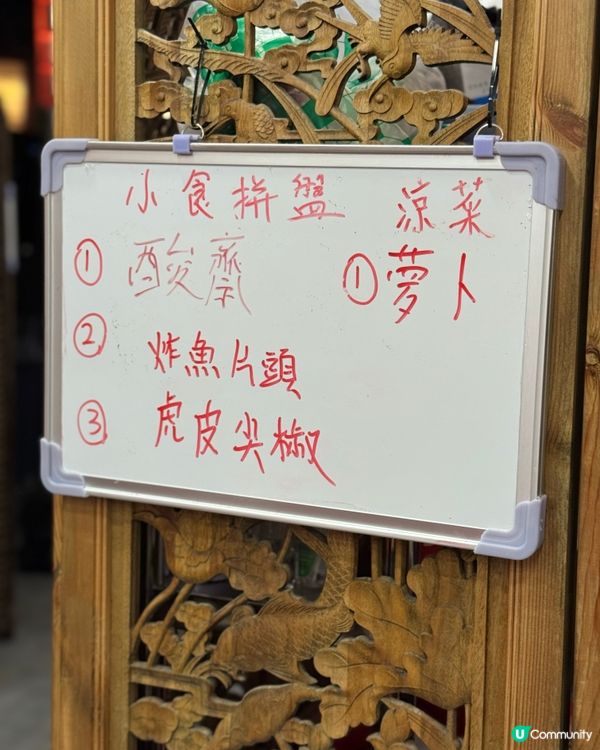 小食拼盤
① 酸齋
② 炸魚片頭
③ 虎皮尖椒
涼菜
① 萝卜
U Community